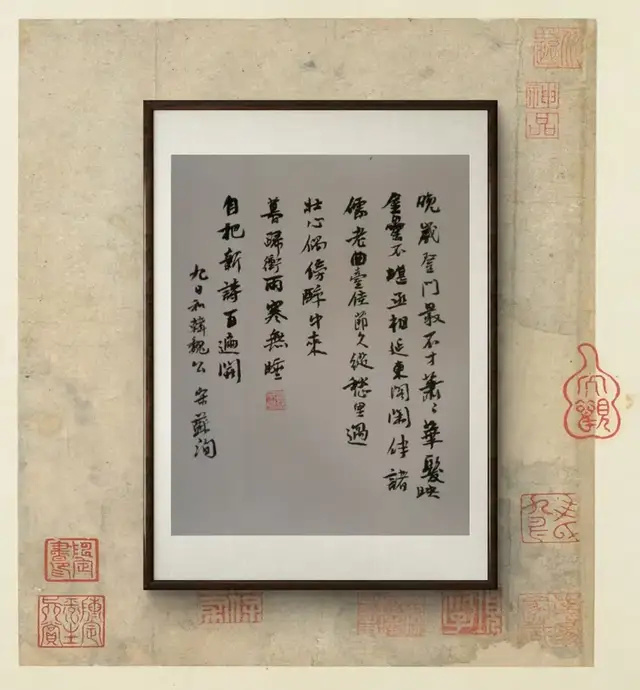 晚歲登門最不才蕭〻華髮映
金罍不堪丞相延東閣閑伴諸
儒老曲臺佳節久從愁里過
壯心偶傍醉中來
暮歸衝雨寒無睡
自把新詩百遍開
九日和韓魏公 宋蘇洵
神品
大觀